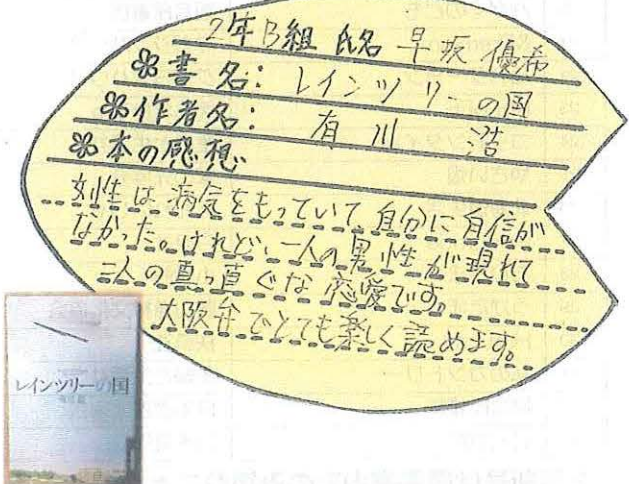 2年B組 氏名 早坂 優希
書名: レインツリーの国
作者名: 有川 浩
本の感想
女性は病気をもっていて、自分に自信が
なかった。けれど、一人の男性が現れて
二人の真っ直ぐな恋愛です。
大阪弁でとても楽しく読めます。
レインツリーの国